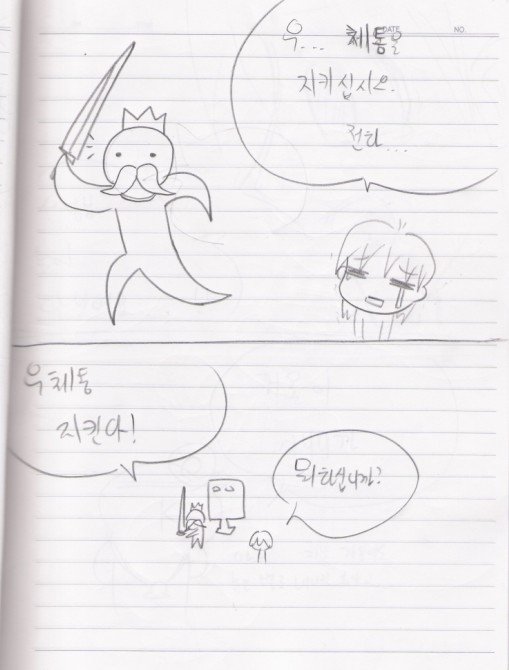 DATE
NO.
우... 체통을
지키십시오.
전하...
우체통
지킨다!
뭐하십니까?